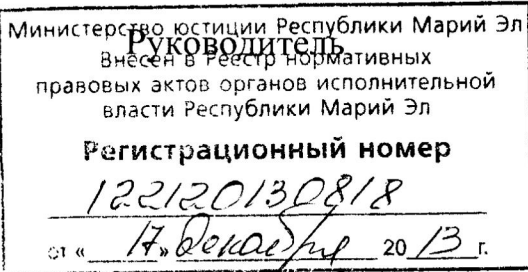 Министерство юстиции Республики Марий Эл
Руководитель
Внесен в Реестр нормативных
правовых актов органов исполнительной
власти Республики Марий Эл
Регистрационный номер
122120130818
от « 17 » декабря 20 13 г.